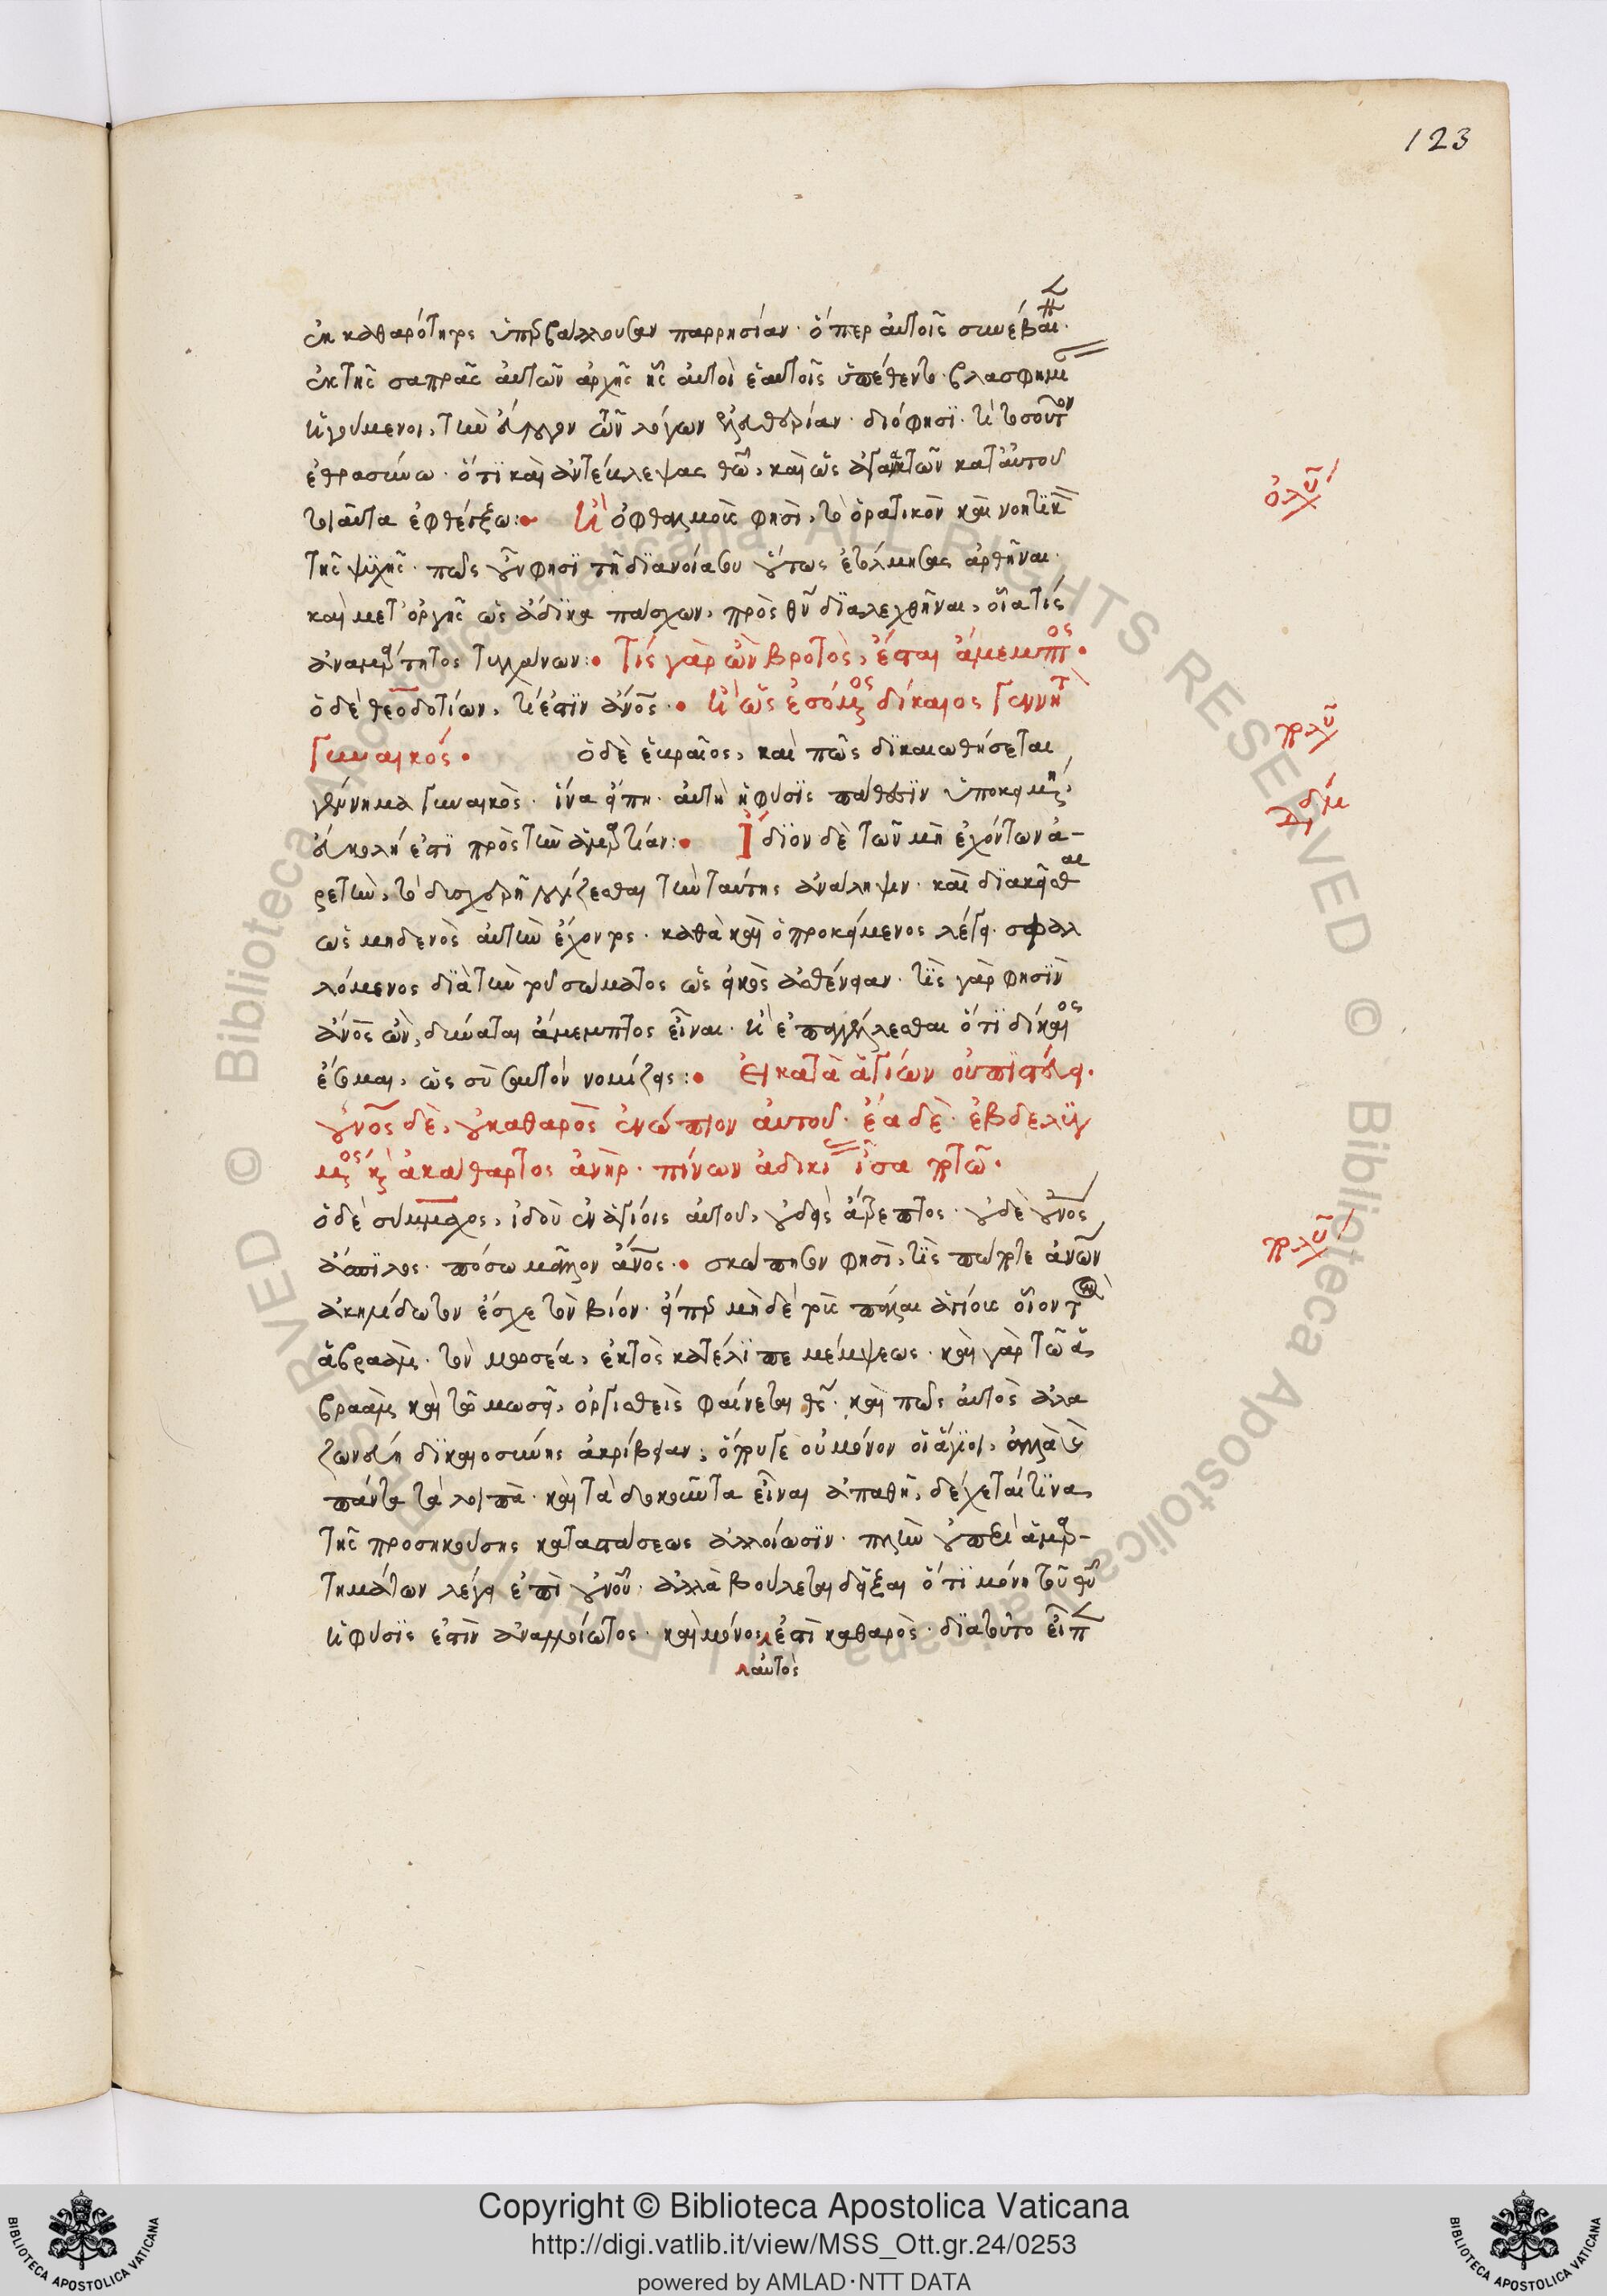 123
ἐκ καθαρότητος ὑπερβάλλουσαν παρρησίαν· ὅπερ αὐτοῖς συνέβαι·
ἐκ τῆς σαπρᾶς αὐτῶν ἀρχῆς ἧς αὐτοὶ ἑαυτοῖς ὑπέθεντο βλασφημ
ἡγούμενοι, τὴν τῶν λόγων ἐλευθερίαν· διό φησι· τί τοσοῦτον
ἐθρασύνω· ὅτι καὶ ἀντέκλεψας θῶ, καὶ ὡς ἀγανακτῶν κατ' αὐτοῦ
τοιαῦτα ἐφθέγξω:• ἢ ὀφθαλμοὺς φησὶ, τὸ ὁρατικὸν καὶ νοητικ
ὀλυ
τῆς ψυχῆς· πῶς οὖν φησι τῇ διανοία σου οὕτως ἐτόλμησας ἀρθῆναι·
καὶ μετ' ὀργῆς ὡς ἄδικα πάσχων, πρὸς θν διαλεχθῆναι, οἷα τίς
ἀναμάρτητος τυγχάνων:• τίς γὰρ ὢν βροτὸς, ἔσται ἄμεμπτος•
ὁ δὲ θεοδοτίων, τί ἐστιν ἄνος·• ἢ ὡς ἐσόμενος δίκαιος γεννητ
γυναικός• ὁ δὲ ἑβραῖος, καὶ πῶς δικαιωθήσεται
πολυ
γέννημα γυναικὸς· ἵνα εἴπη· αὐτὴ ἡ φύσις πάθεσιν ὑποκειμένη,
εὔκολη ἐστι πρὸς τὴν ἁμαρτίαν:• Ἴδιον δὲ τῶν μὴ ἐχόντων ἀ-
ρετὴν, τὸ δυσχερῆ λογίζεσθαι τὴν ταύτης ἀνάληψιν· καὶ διακεῖσθαι
ὡς μηδενὸς αὐτὴν ἔχοντος· καθὰ καὶ ὁ προκείμενος λέγει· σφαλ
λόμενος διὰ τὴν τοῦ σώματος ὡς εἰκὸς ἀσθένειαν· τίς γὰρ φησὶν
ἄνος ὢν, δύναται ἄμεμπτος εἶναι· ἢ ἐπαγγέλλεσθαι ὅτι δίκαιος
ἔσομαι, ὡς σὺ σαυτὸν νομίζεις:• Εἰ κατὰ ἁγίων οὐ πιστεύει·
οὐνος δὲ, οὐ καθαρὸς ἐνώπιον αὐτοῦ· ἔα δὲ· ἐβδελυγ
μένος καὶ ἀκάθαρτος ἀνὴρ· πίνων ἀδικί ἴσα ποτῶ·
ὁ δὲ σύμμαχος, ἰδοὺ ἐν ἁγίοις αὐτοῦ, οὐδεὶς ἄτρεπτος· οὐδὲ οὐνος
πολυ
ἄσπιλος· πόσω μᾶλλον ἄνος·• σκόπησον φησὶ, τίς πώποτε ἀνων
ἀκηλίδωτον ἔσχε τὸν βίον· εἴπερ μηδὲ τοὺς πάλαι ἁγίους οἷον τὸν
ἀβραὰμ· τὸν μωσέα, ἐκτὸς κατέλιπε μέμψεως· καὶ γὰρ τῶ ἀ
βραὰμ καὶ τῶ μωσῆ, ὀργισθεὶς φαίνεται θς· καὶ πῶς αὐτὸς ἀλα
ζονεύη δικαιοσύνης ἀκρίβειαν; ὅπουγε οὐ μόνον οἱ ἅγιοι, ἀλλὰ καὶ
πάντα τὰ λοιπὰ· καὶ τὰ δοκοῦντα εἶναι ἀπαθῆ, δέχεταί τινα
τῆς προσηκούσης καταστάσεως ἀλλοίωσιν· πλὴν οὐ περὶ ἁμαρ-
τημάτων λέγει ἐπὶ οὐνοῦ· ἀλλὰ βούλεται δεῖξαι ὅτι μόνη τοῦ θυ
ἡ φύσις ἐστὶν ἀναλλοίωτος· καὶ μόνος ἐστὶ καθαρὸς· διὰ τοῦτο εἶπ
αὐτὸς
Copyright © Biblioteca Apostolica Vaticana
http://digi.vatlib.it/view/MSS_Ott.gr.24/0253
powered by AMLAD·NTT DATA